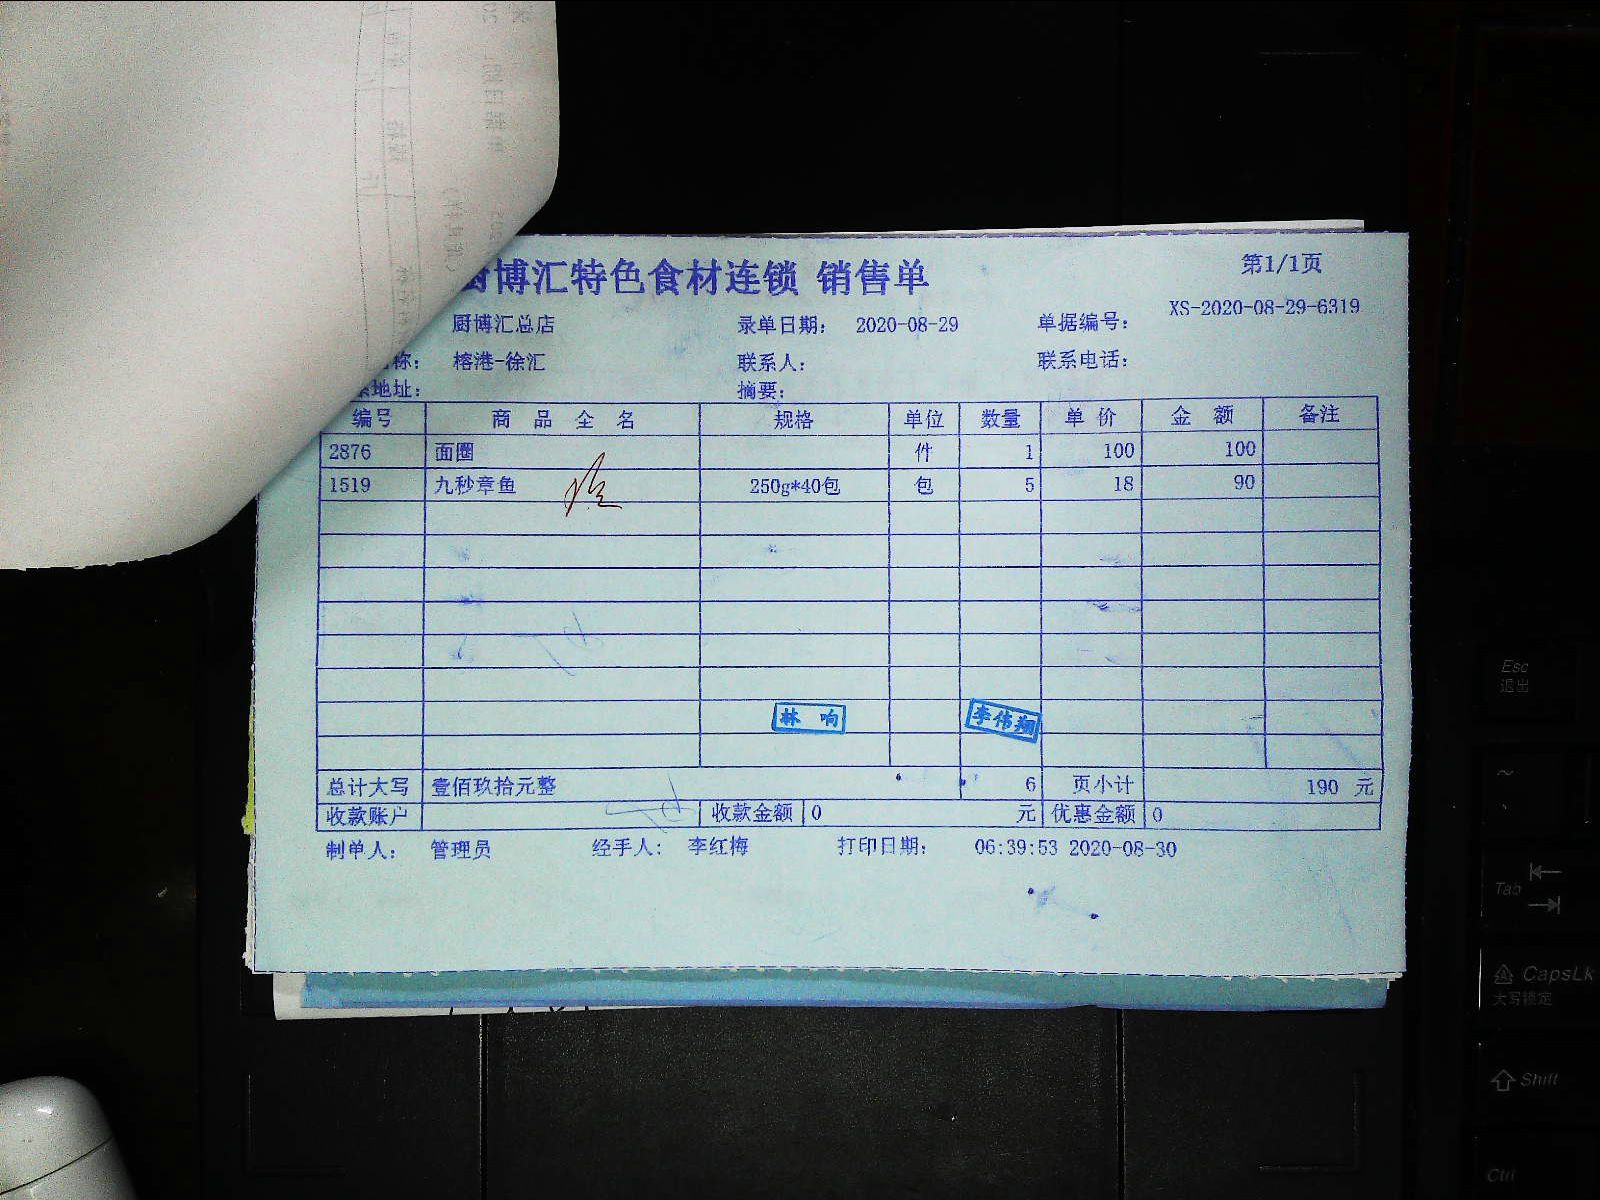 厨博汇特色食材连锁 销售单
第1/1页
厨博汇总店 录单日期： 2020-08-29 单据编号： XS-2020-08-29-6319
称： 榕港-徐汇 联系人： 联系电话：
地址： 摘要：
编号 商品全名 规格 单位 数量 单价 金额 备注
2876 面圈 件 1 100 100
1519 九秒章鱼 250g*40包 包 5 18 90
林响 李伟翔
总计大写 壹佰玖拾元整 6 页小计 190 元
收款账户 收款金额 0 元 优惠金额 0
制单人： 管理员 经手人： 李红梅 打印日期： 06:39:53 2020-08-30
Esc
退出
~
Tab
CapsLk
大写锁定
Shift
Ctrl